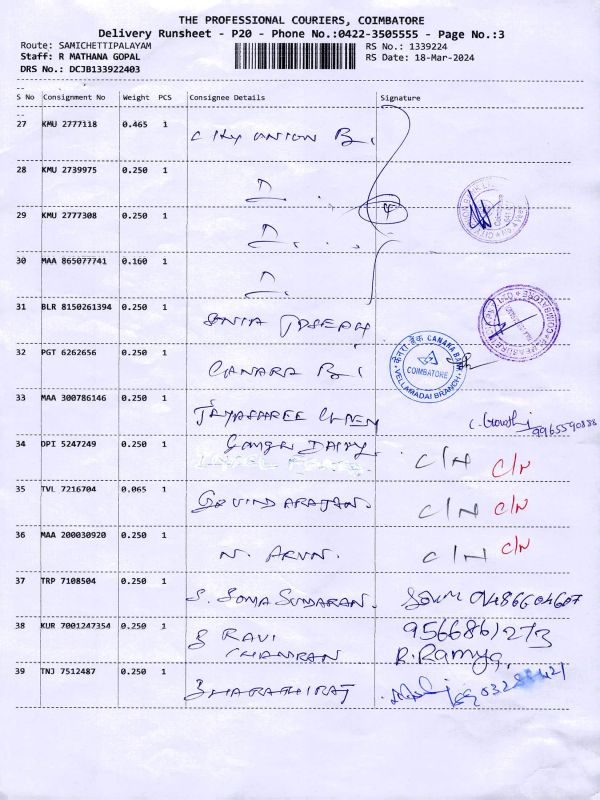 THE PROFESSIONAL COURIERS, COIMBATORE
Delivery Runsheet - P20 - Phone No.:0422-3505555 - Page No.:3
Route: SAMICHETTIPALAYAM
RS No.: 1339224
Staff: R MATHANA GOPAL
RS Date: 18-Mar-2024
DRS No.: DCJB133922403
S No Consignment No Weight PCS Consignee Details Signature
27 KMU 2777118 0.465 1 City UNION B
28 KMU 2739975 0.250 1
29 KMU 2777308 0.250 1 4
30 MAA 865077741 0.160 1
31 BLR 8150261394 0.250 1 JOSEPH
32 PGT 6262656 0.250 1 CANARA B
केनरा बैंक CANARA BANK
COIMBATORE
VELLAMADAI BRANCH
33 MAA 300786146 0.250 1 JAYASHREE 9965590888
34 DPI 5247249 0.250 1 Ganga DAIRY C/N C/N
35 TVL 7216704 0.065 1 GOVINDARAJAN. C/N C/N
36 MAA 200030920 0.250 1 N. ARUN. C/N C/N
37 TRP 7108504 0.250 1 S. SOMA SUNDARAN.
38 KUR 7001247354 0.250 1 RAVI 9566861273
CHANRAN R. Ramya,
39 TNJ 7512487 0.250 1 BHARATHIRAJ